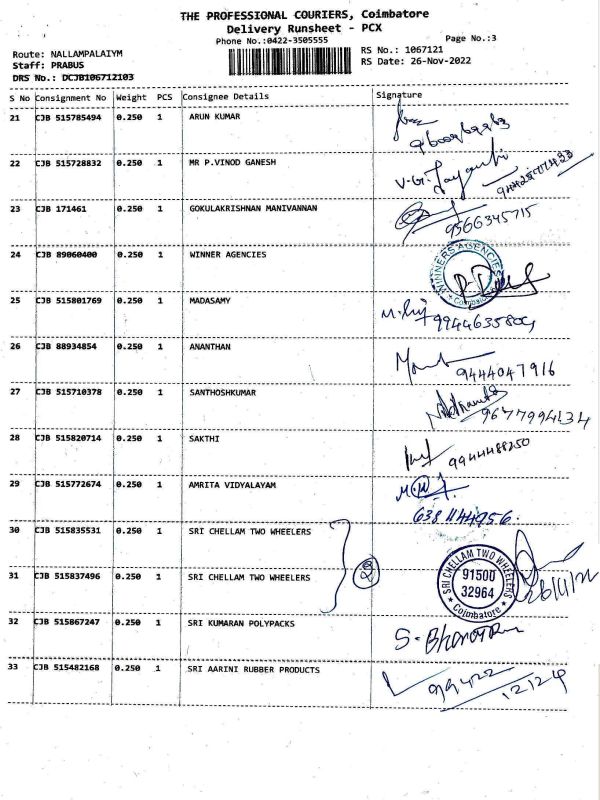 THE PROFESSIONAL COURIERS, Coimbatore
Delivery Runsheet - PCX
Phone No.:0422-3505555
Page No.:3
Route: NALLAMPALAIYM
RS No.: 1067121
Staff: PRABUS
RS Date: 26-Nov-2022
DRS No.: DCJB106712103
S No Consignment No Weight PCS Consignee Details Signature
21 CJB 515785494 0.250 1 ARUN KUMAR
22 CJB 515728832 0.250 1 MR P.VINOD GANESH
V.G. Jayanthi
23 CJB 171461 0.250 1 GOKULAKRISHNAN MANIVANNAN
9566345715
24 CJB 89060400 0.250 1 WINNER AGENCIES
WINNERS AGENCIES
Coimbatore
25 CJB 515801769 0.250 1 MADASAMY
9944635804
26 CJB 88934854 0.250 1 ANANTHAN
9444047916
27 CJB 515710378 0.250 1 SANTHOSHKUMAR
9677994134
28 CJB 515820714 0.250 1 SAKTHI
9944488250
29 CJB 515772674 0.250 1 AMRITA VIDYALAYAM
6381144956
30 CJB 515835531 0.250 1 SRI CHELLAM TWO WHEELERS
31 CJB 515837496 0.250 1 SRI CHELLAM TWO WHEELERS
2
SRI CHELLAM TWO WHEELERS
91500
32964
Coimbatore
26/11/22
32 CJB 515867247 0.250 1 SRI KUMARAN POLYPACKS
33 CJB 515482168 0.250 1 SRI AARINI RUBBER PRODUCTS
99422
12124